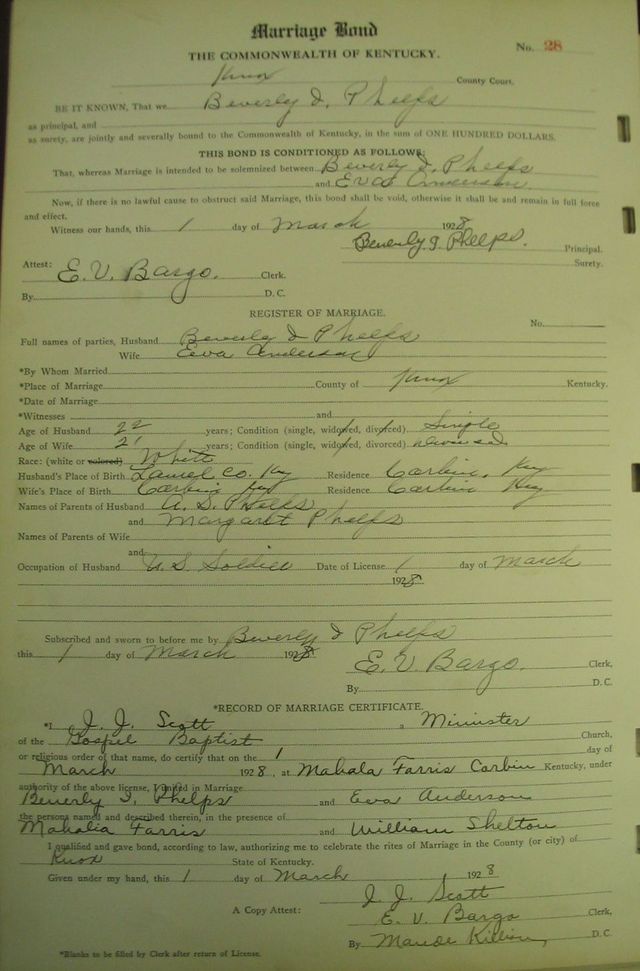 Marriage Bond
THE COMMONWEALTH OF KENTUCKY.
No. 28
Knox County Court.
BE IT KNOWN, That we Beverly I. Phelps
as principal, and
as surety, are jointly and severally bound to the Commonwealth of Kentucky, in the sum of ONE HUNDRED DOLLARS.
THIS BOND IS CONDITIONED AS FOLLOWS:
That, whereas Marriage is intended to be solemnized between Beverly I. Phelps
and Eva Anderson
Now, if there is no lawful cause to obstruct said Marriage, this bond shall be void, otherwise it shall be and remain in full force
and effect.
Witness our hands, this 1 day of March 1928
Beverly I. Phelps. Principal.
Surety.
Attest:
E. V. Bargo. Clerk.
By D. C.
REGISTER OF MARRIAGE.
No.
Full names of parties, Husband Beverly I Phelps
Wife Eva Anderson
*By Whom Married
*Place of Marriage County of Knox Kentucky.
*Date of Marriage
*Witnesses and
Age of Husband 22 years; Condition (single, widowed, divorced) Single
Age of Wife 21 years; Condition (single, widowed, divorced)
Race: (white or colored) White
Husband's Place of Birth Laurel Co. Ky Residence Corbin, Ky
Wife's Place of Birth Corbin Ky Residence Corbin Ky
Names of Parents of Husband S. Phelps
and Margaret Phelps
Names of Parents of Wife
and
Occupation of Husband U.S. Soldier Date of License 1 day of March
1928
Subscribed and sworn to before me by Beverly I Phelps
this 1 day of March 1928
E. V. Bargo. Clerk,
By D. C.
*RECORD OF MARRIAGE CERTIFICATE.
*I J. J. Scott a Minister
of the Gospel Baptist Church,
or religious order of that name, do certify that on the 1 day of
March 1928, at Mahala Farris Corbin Kentucky, under
authority of the above license, I united in Marriage
Beverly I. Phelps and Eva Anderson
the persons named and described therein, in the presence of
Mahalia Farris and William Shelton
I qualified and gave bond, according to law, authorizing me to celebrate the rites of Marriage in the County (or city) of
Knox State of Kentucky.
Given under my hand, this 1 day of March 1928
J. J. Scott
A Copy Attest: E. V. Bargo Clerk,
By Maude Killion
*Blanks to be filled by Clerk after return of License.